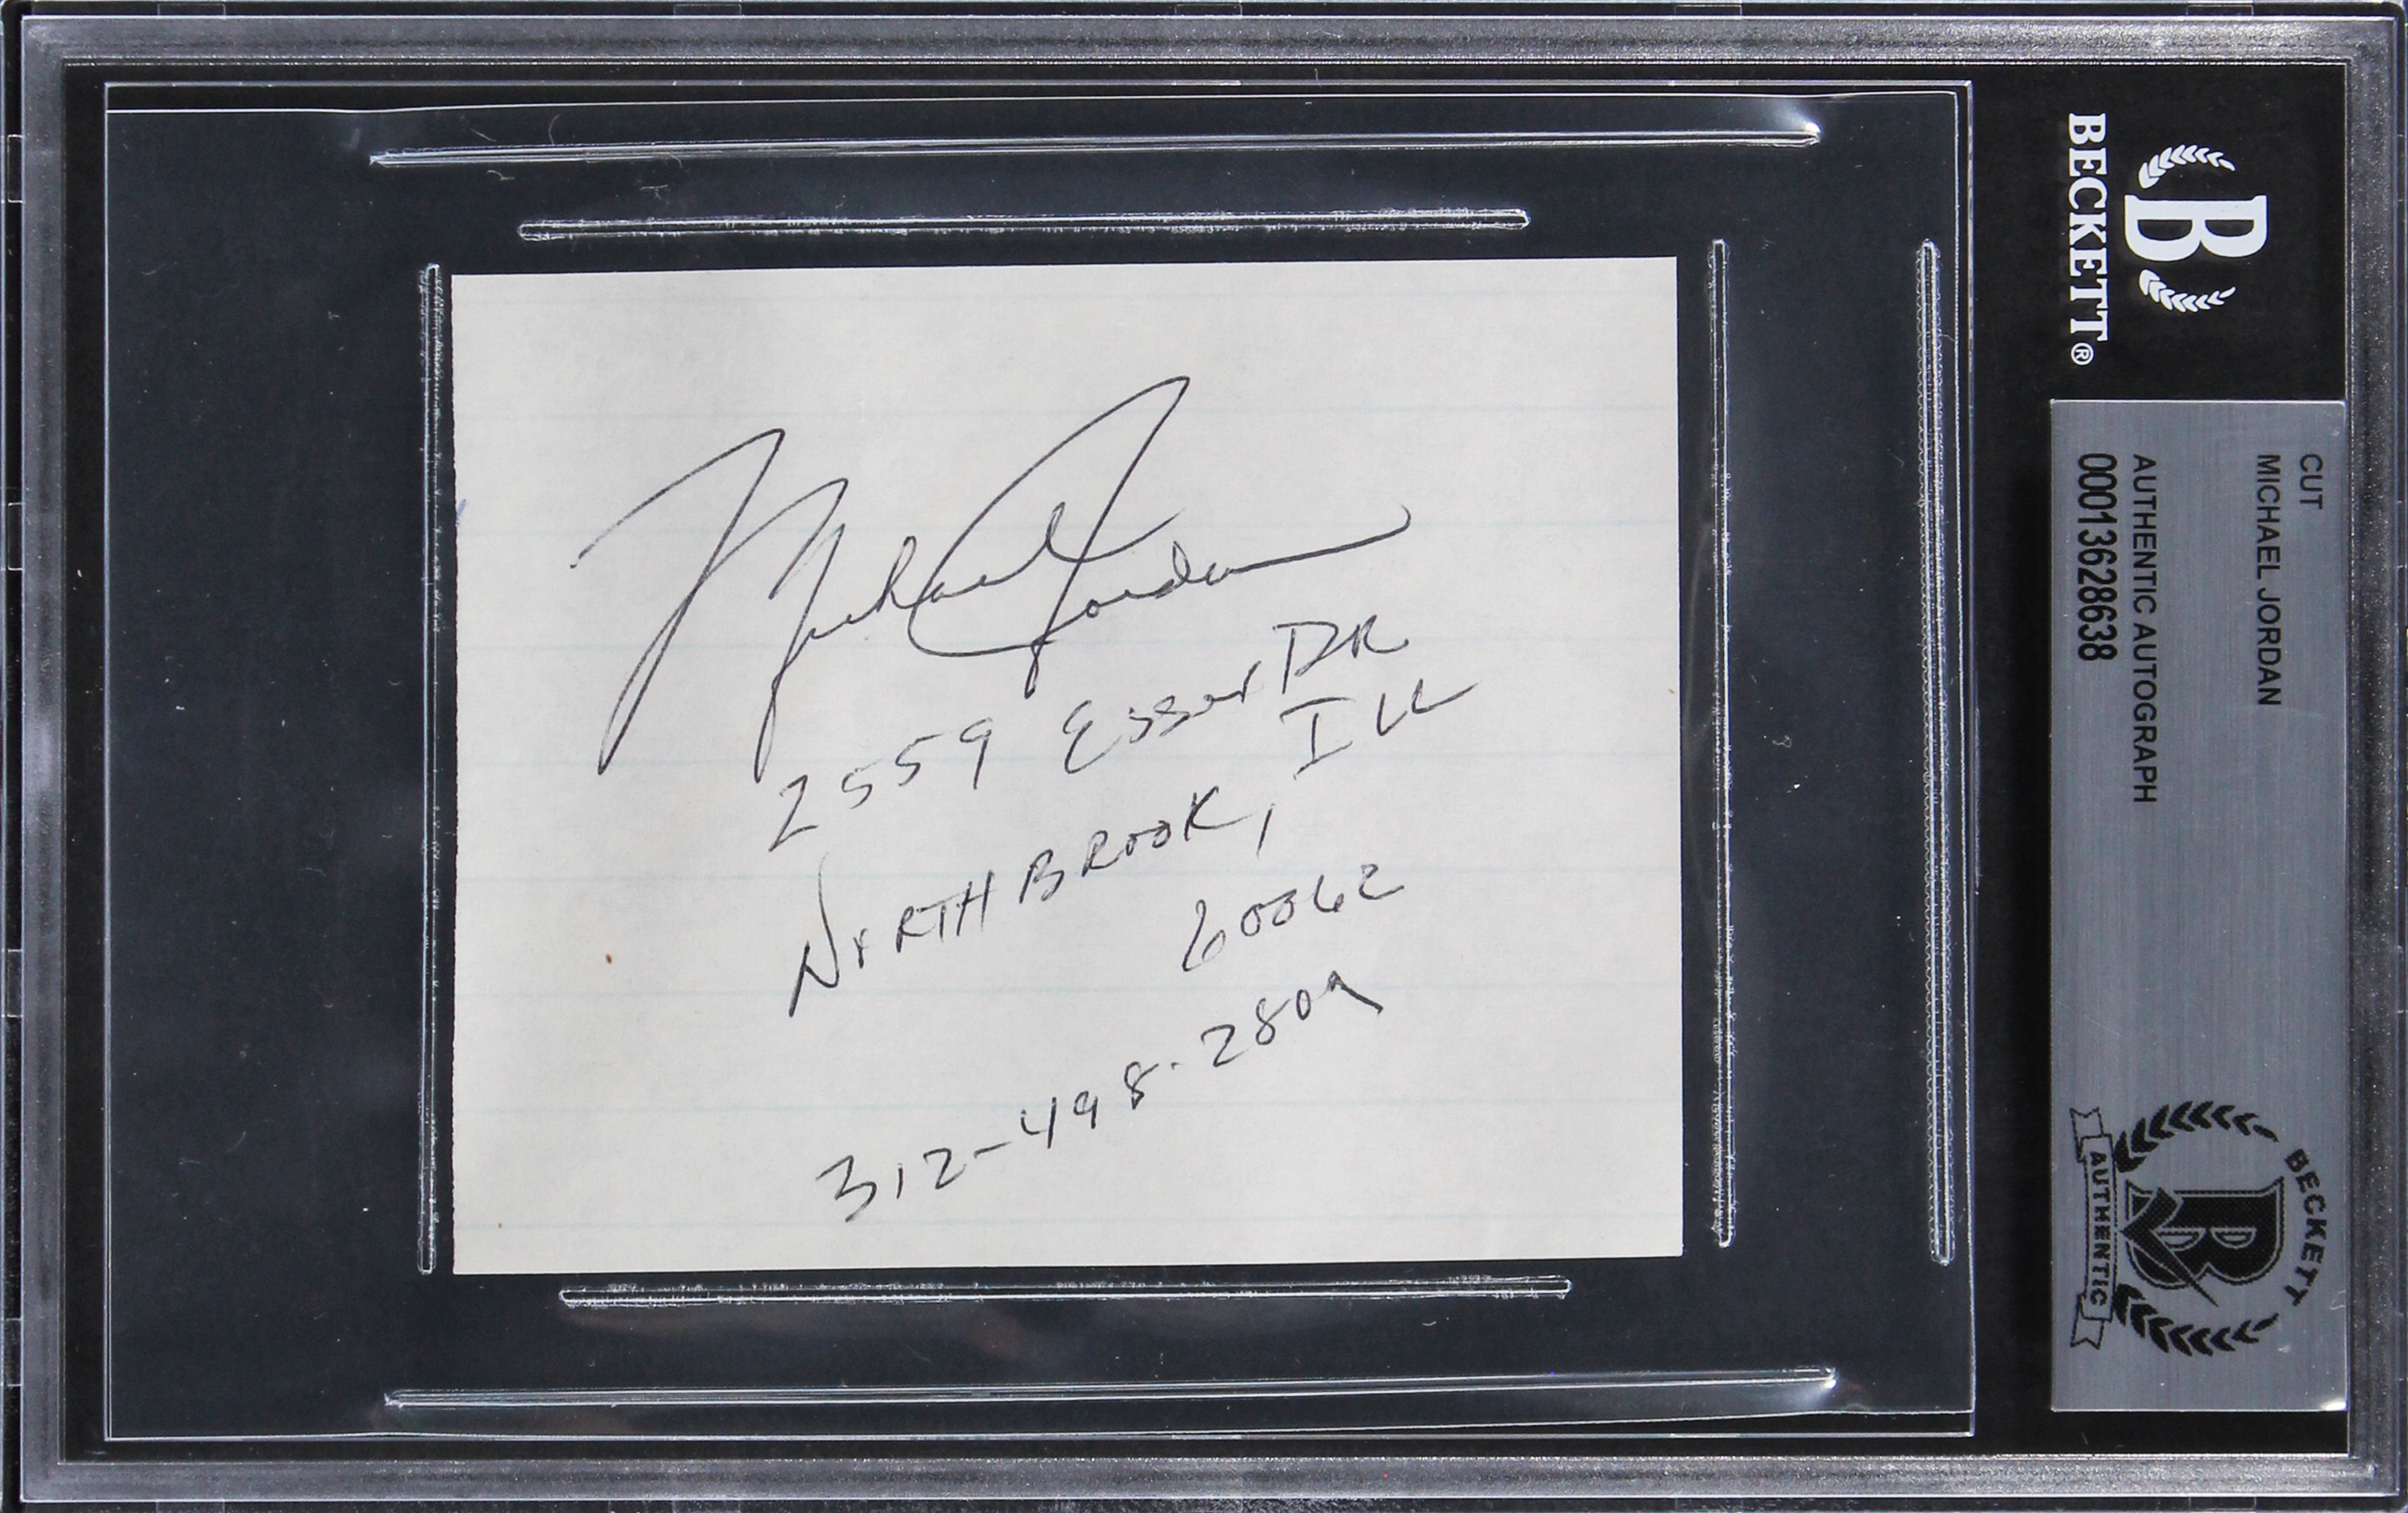 Michael Jordan
2559 Essex DR
NORTHBROOK, ILL
60062
312-498-2809
BECKETT®
CUT
MICHAEL JORDAN
AUTHENTIC AUTOGRAPH
00013628638
BECKETT
AUTHENTIC